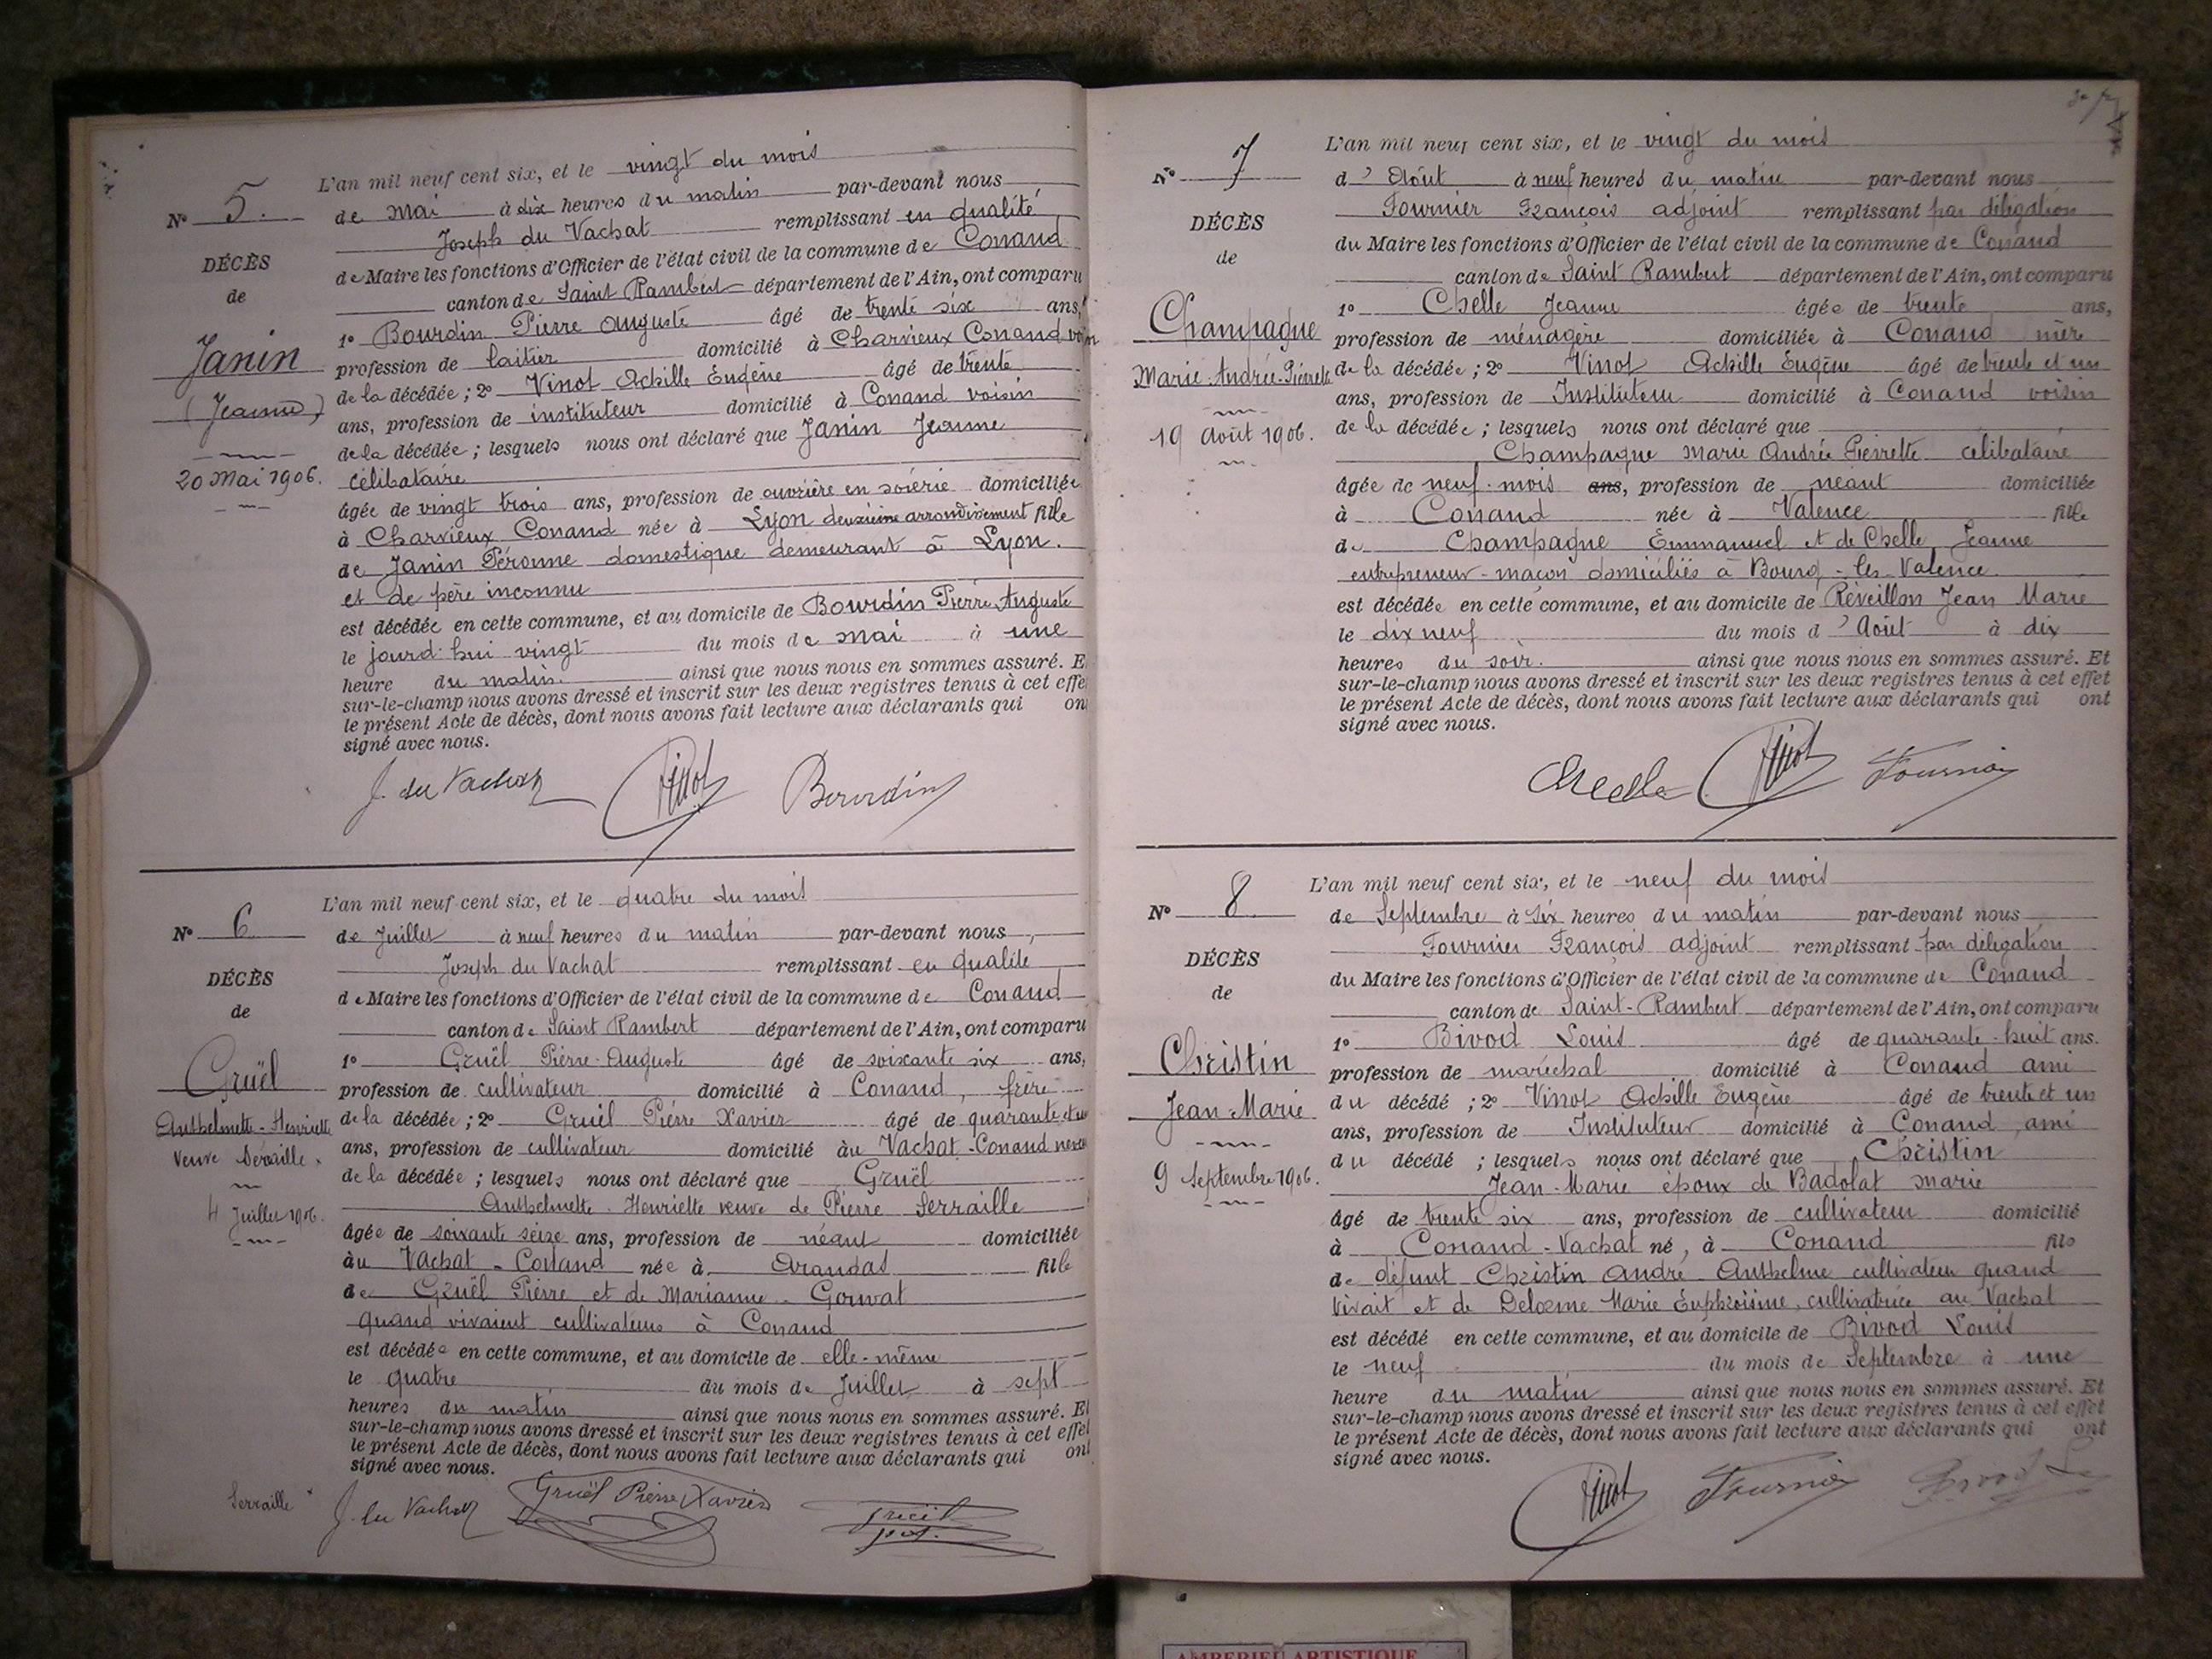 N° 5.
DÉCÈS
de
Janin
(Jeanne)
20 Mai 1906.
L'an mil neuf cent six, et le vingt du mois
de Mai à dix heures du matin par-devant nous
Joseph du Vachat remplissant en qualité
de Maire les fonctions d'Officier de l'état civil de la commune de Conand
canton de Saint Rambert département de l'Ain, ont comparu
1° Bourdin Pierre Auguste âgé de trente six ans,
profession de laitier domicilié à Charvieux Conand voisin
de la décédée ; 2° Vinot Achille Eugène âgé de trente
ans, profession de instituteur domicilié à Conand voisin
de la décédée ; lesquels nous ont déclaré que Janin Jeanne
célibataire
âgée de vingt trois ans, profession de ouvrière en soierie domiciliée
à Charvieux Conand née à Lyon deuxième arrondissement fille
de Janin Péronne domestique demeurant à Lyon.
et de père inconnu
est décédée en cette commune, et au domicile de Bourdin Pierre Auguste
le jourd'hui vingt du mois de mai à une
heure du matin. ainsi que nous nous en sommes assuré. E
sur-le-champ nous avons dressé et inscrit sur les deux registres tenus à cet effe
le présent Acte de décès, dont nous avons fait lecture aux déclarants qui on
signé avec nous.
J. du Vachat Vinot Bourdin
N° 6
DÉCÈS
de
Gruël
Anthelmette-Henriette
Veuve Serraille
4 Juillet 1906.
L'an mil neuf cent six, et le quatre du mois
de Juillet à neuf heures du matin par-devant nous
Joseph du Vachat remplissant en qualité
de Maire les fonctions d'Officier de l'état civil de la commune de Conand
canton de Saint Rambert département de l'Ain, ont comparu
1° Gruël Pierre-Auguste âgé de soixante six ans,
profession de cultivateur domicilié à Conand, frère
de la décédée ; 2° Gruël Pierre Xavier âgé de quarante et un
ans, profession de cultivateur domicilié au Vachat-Conand neveu
de la décédée ; lesquels nous ont déclaré que Gruël
Anthelmette-Henriette veuve de Pierre Serraille
âgée de soixante seize ans, profession de néant domiciliée
au Vachat-Conand née à Arandas fille
de Gruël Pierre et de Marianne Gorvat
quand vivaient cultivateurs à Conand
est décédée en cette commune, et au domicile de elle-même
le quatre du mois de Juillet à sept
heures du matin ainsi que nous nous en sommes assuré. Et
sur-le-champ nous avons dressé et inscrit sur les deux registres tenus à cet effet
le présent Acte de décès, dont nous avons fait lecture aux déclarants qui ont
signé avec nous.
Serraille J. du Vachat Gruël Pierre Xavier Gruël
N° 7
DÉCÈS
de
Champagne
Marie-Andrée-Pierrette
19 Août 1906.
L'an mil neuf cent six, et le vingt du mois
d'Août à neuf heures du matin par-devant nous
Fournier François adjoint remplissant par délégation
du Maire les fonctions d'Officier de l'état civil de la commune de Conand
canton de Saint Rambert département de l'Ain, ont comparu
1° Chelle Jeanne âgée de trente ans,
profession de ménagère domiciliée à Conand mère
de la décédée ; 2° Vinot Achille Eugène âgé de trente et un
ans, profession de Instituteur domicilié à Conand voisin
de la décédée ; lesquels nous ont déclaré que
Champagne Marie Andrée Pierrette célibataire
âgée de neuf mois ans, profession de néant domiciliée
à Conand née à Valence fille
de Champagne Emmanuel et de Chelle Jeanne
entrepreneur-maçon domiciliés à Bourg-les-Valence
est décédée en cette commune, et au domicile de Réveillon Jean Marie
le dix neuf du mois d'Août à dix
heures du soir. ainsi que nous nous en sommes assuré. Et
sur-le-champ nous avons dressé et inscrit sur les deux registres tenus à cet effet
le présent Acte de décès, dont nous avons fait lecture aux déclarants qui ont
signé avec nous.
Chelle Vinot Fournier
N° 8
DÉCÈS
de
Christin
Jean-Marie
9 Septembre 1906.
L'an mil neuf cent six, et le neuf du mois
de Septembre à six heures du matin par-devant nous
Fournier François adjoint remplissant par délégation
du Maire les fonctions d'Officier de l'état civil de la commune de Conand
canton de Saint-Rambert département de l'Ain, ont comparu
1° Bivod Louis âgé de quarante-huit ans.
profession de maréchal domicilié à Conand ami
du décédé ; 2° Vinot Achille Eugène âgé de trente et un
ans, profession de Instituteur domicilié à Conand ami
du décédé ; lesquels nous ont déclaré que Christin
Jean-Marie époux de Badolat Marie
âgé de trente six ans, profession de cultivateur domicilié
à Conand-Vachat né, à Conand fils
de défunt Christin André Anthelme cultivateur quand
vivait et de Delorme Marie Euphroisine, cultivatrice au Vachat
est décédé en cette commune, et au domicile de Bivod Louis
le neuf du mois de Septembre à une
heure du matin ainsi que nous nous en sommes assuré. Et
sur-le-champ nous avons dressé et inscrit sur les deux registres tenus à cet effet
le présent Acte de décès, dont nous avons fait lecture aux déclarants qui ont
signé avec nous.
Vinot Fournier Bivod
AMBERIEU ARTISTIQUE